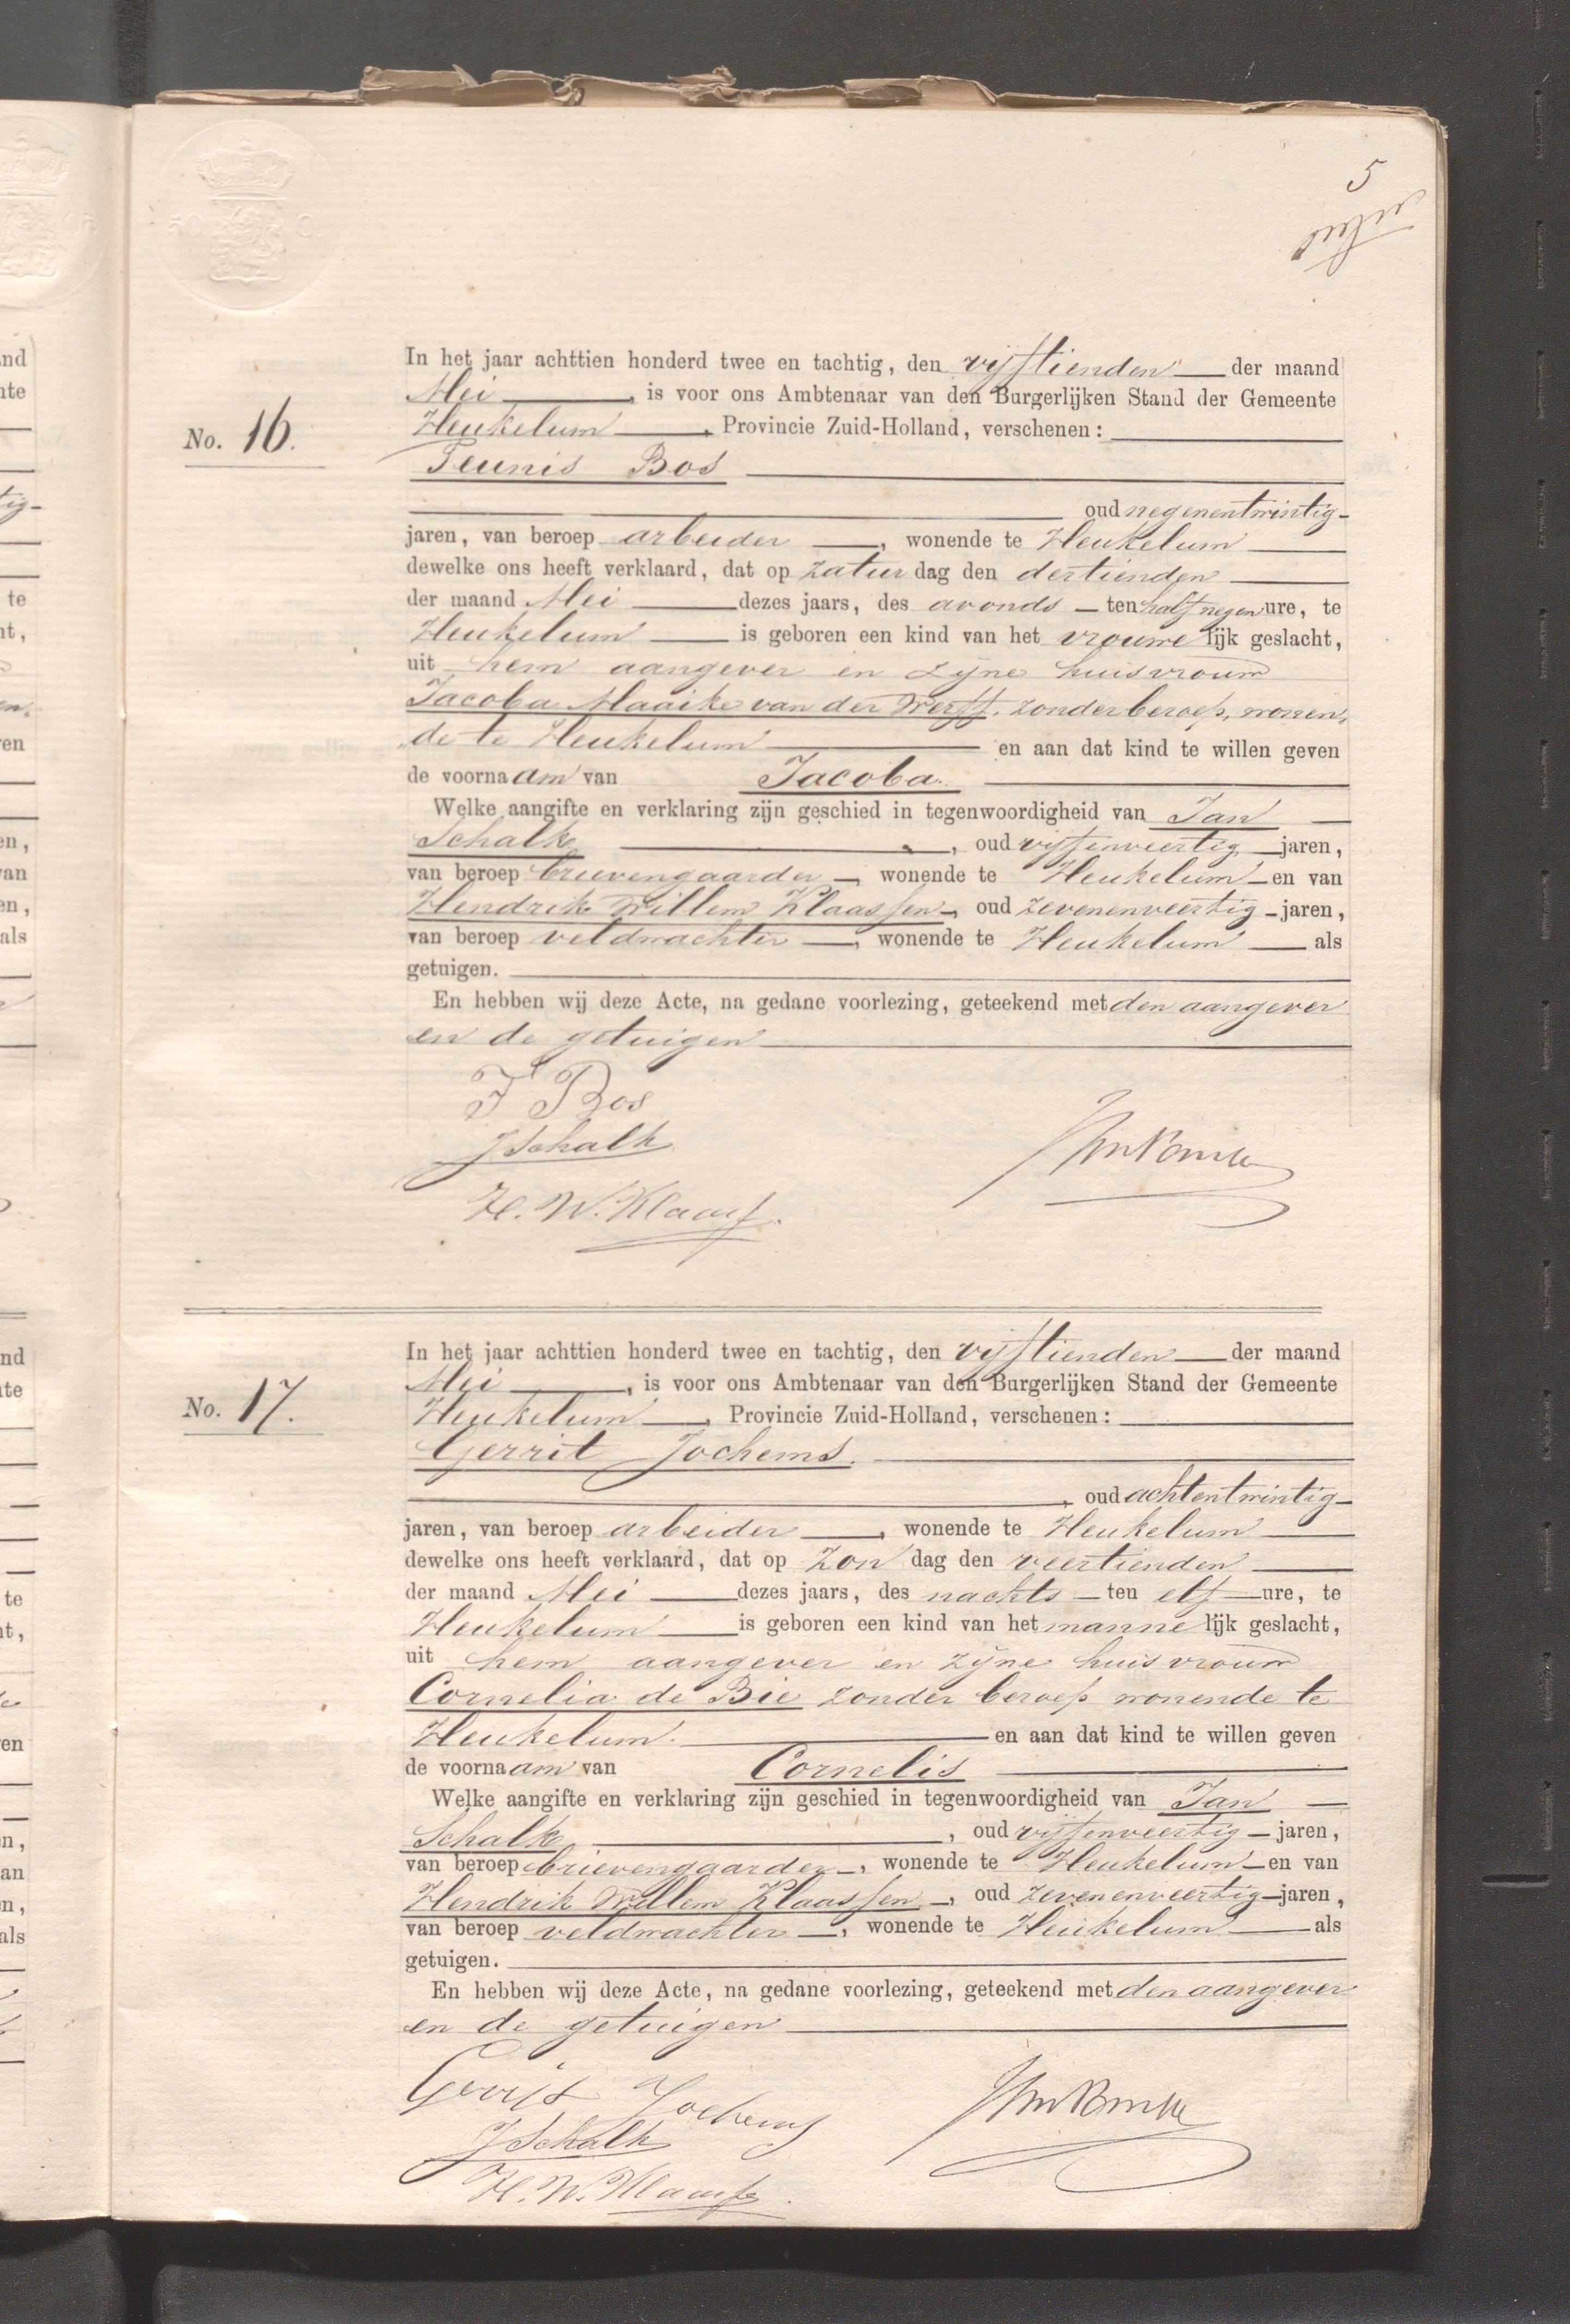 5
No. 16.
In het jaar achttien honderd twee en tachtig, den vijftienden der maand
Mei, is voor ons Ambtenaar van den Burgerlijken Stand der Gemeente
Heukelum, Provincie Zuid-Holland, verschenen:
Teunis Bos
oud negenentwintig
jaren, van beroep arbeider, wonende te Heukelum
dewelke ons heeft verklaard, dat op zaturdag den dertienden
der maand Mei dezes jaars, des avonds ten half negen ure, te
Heukelum is geboren een kind van het vrouwelijk geslacht,
uit hem aangever en zijne huisvrouw
Jacoba Maaike van der Werff, zonder beroep, wonen„
„de te Heukelum en aan dat kind te willen geven
de voornaam van Jacoba.
Welke aangifte en verklaring zijn geschied in tegenwoordigheid van Jan
Schalk, oud vijfenveertig jaren,
van beroep brievengaarder, wonende te Heukelum en van
Hendrik Willem Klaassen, oud zevenenveertig jaren,
van beroep veldwachter, wonende te Heukelum als
getuigen.
En hebben wij deze Acte, na gedane voorlezing, geteekend met den aangever
en de getuigen
T Bos
J Schalk
H. W. Klaass.
No. 17.
In het jaar achttien honderd twee en tachtig, den vijftienden der maand
Mei, is voor ons Ambtenaar van den Burgerlijken Stand der Gemeente
Heukelum, Provincie Zuid-Holland, verschenen:
Gerrit Jochems.
, oud achtentwintig
jaren, van beroep arbeider, wonende te Heukelum
dewelke ons heeft verklaard, dat op Zondag den veertienden
der maand Mei dezes jaars, des nachts ten elf ure, te
Heukelum is geboren een kind van het mannelijk geslacht,
uit hem aangever en zijne huisvrouw
Cornelia de Bie zonder beroep wonende te
Heukelum. en aan dat kind te willen geven
de voornaam van Cornelis
Welke aangifte en verklaring zijn geschied in tegenwoordigheid van Jan
Schalk, oud vijfenveertig jaren,
van beroep brievengaarder, wonende te Heukelum en van
Hendrik Willem Klaassen, oud zevenenveertig jaren,
van beroep veldwachter, wonende te Heukelum als
getuigen.
En hebben wij deze Acte, na gedane voorlezing, geteekend met den aangever
en de getuigen
Gerrit Jochems
J Schalk
H. W. Klaass.